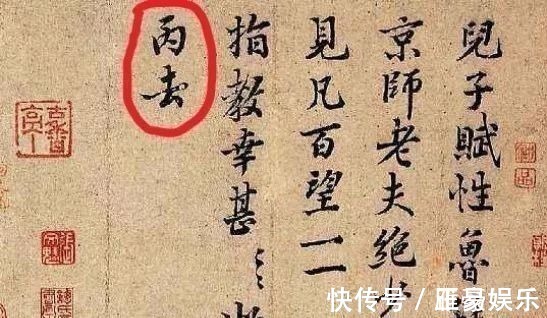 兒子賦性魯
京師老夫絕
見凡百望一一
指教幸甚〻
丙去
快传号／雁豪娱乐